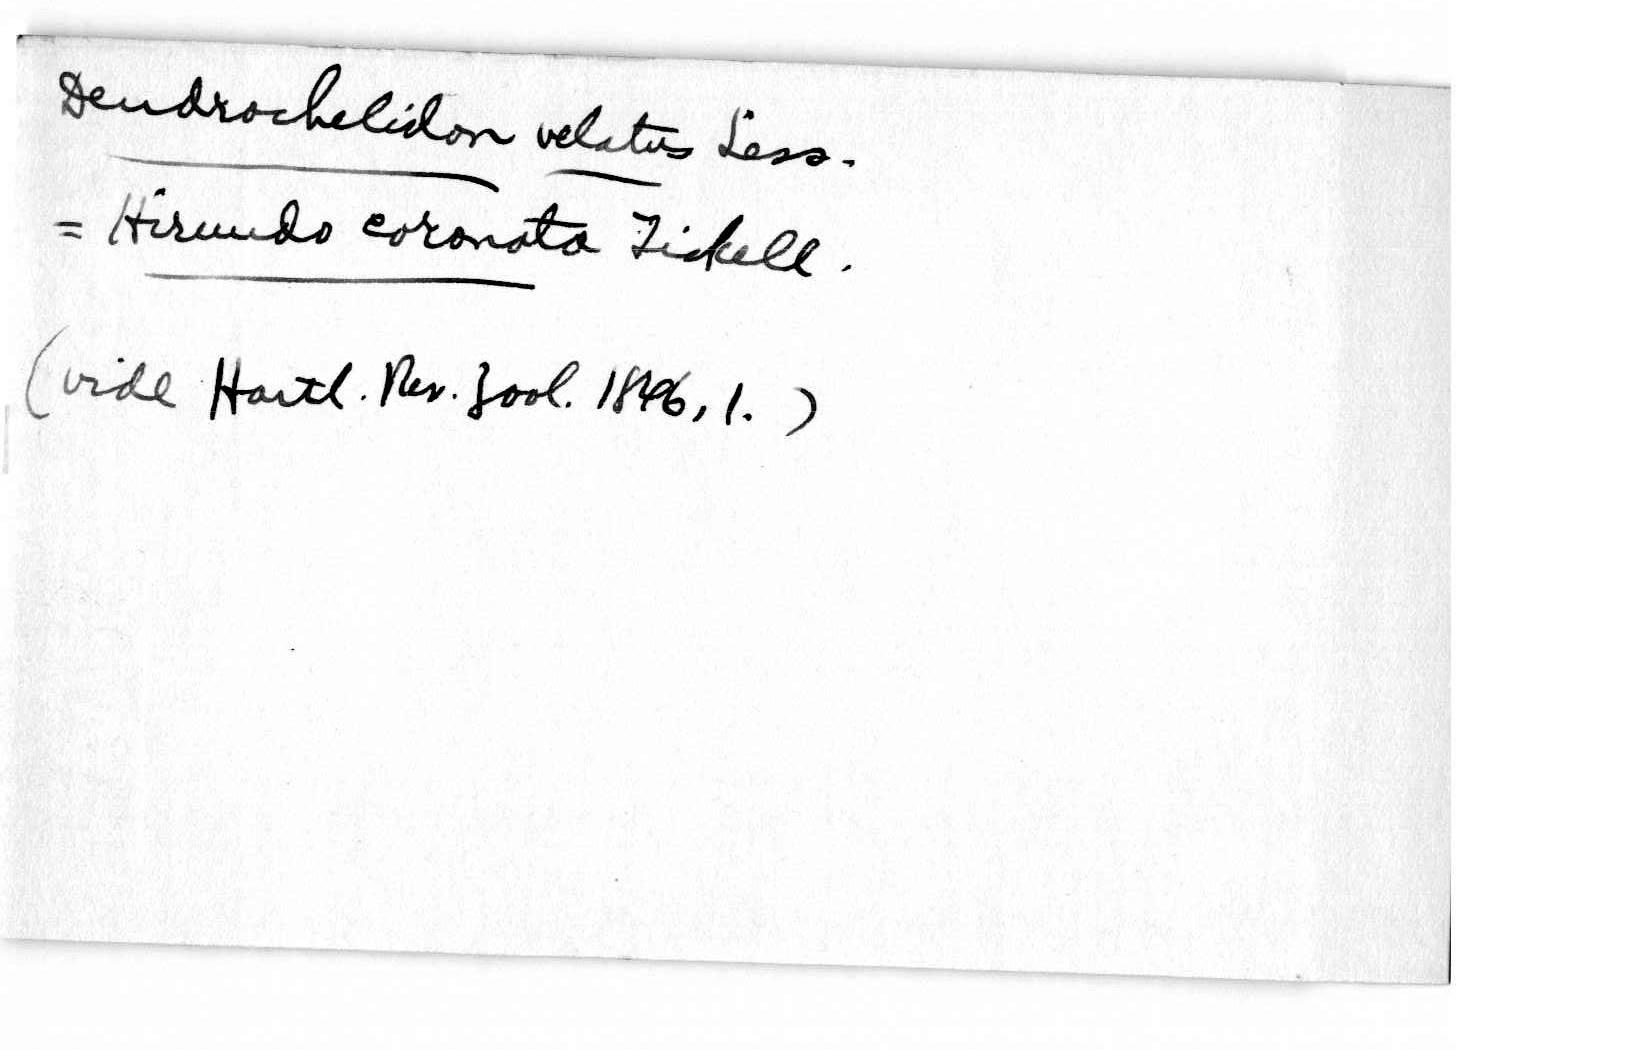 Dendrochelidon velatus Less.
= Hirundo coronata Tickell.
(vide Hartl. Rev. Zool. 1846, 1.)